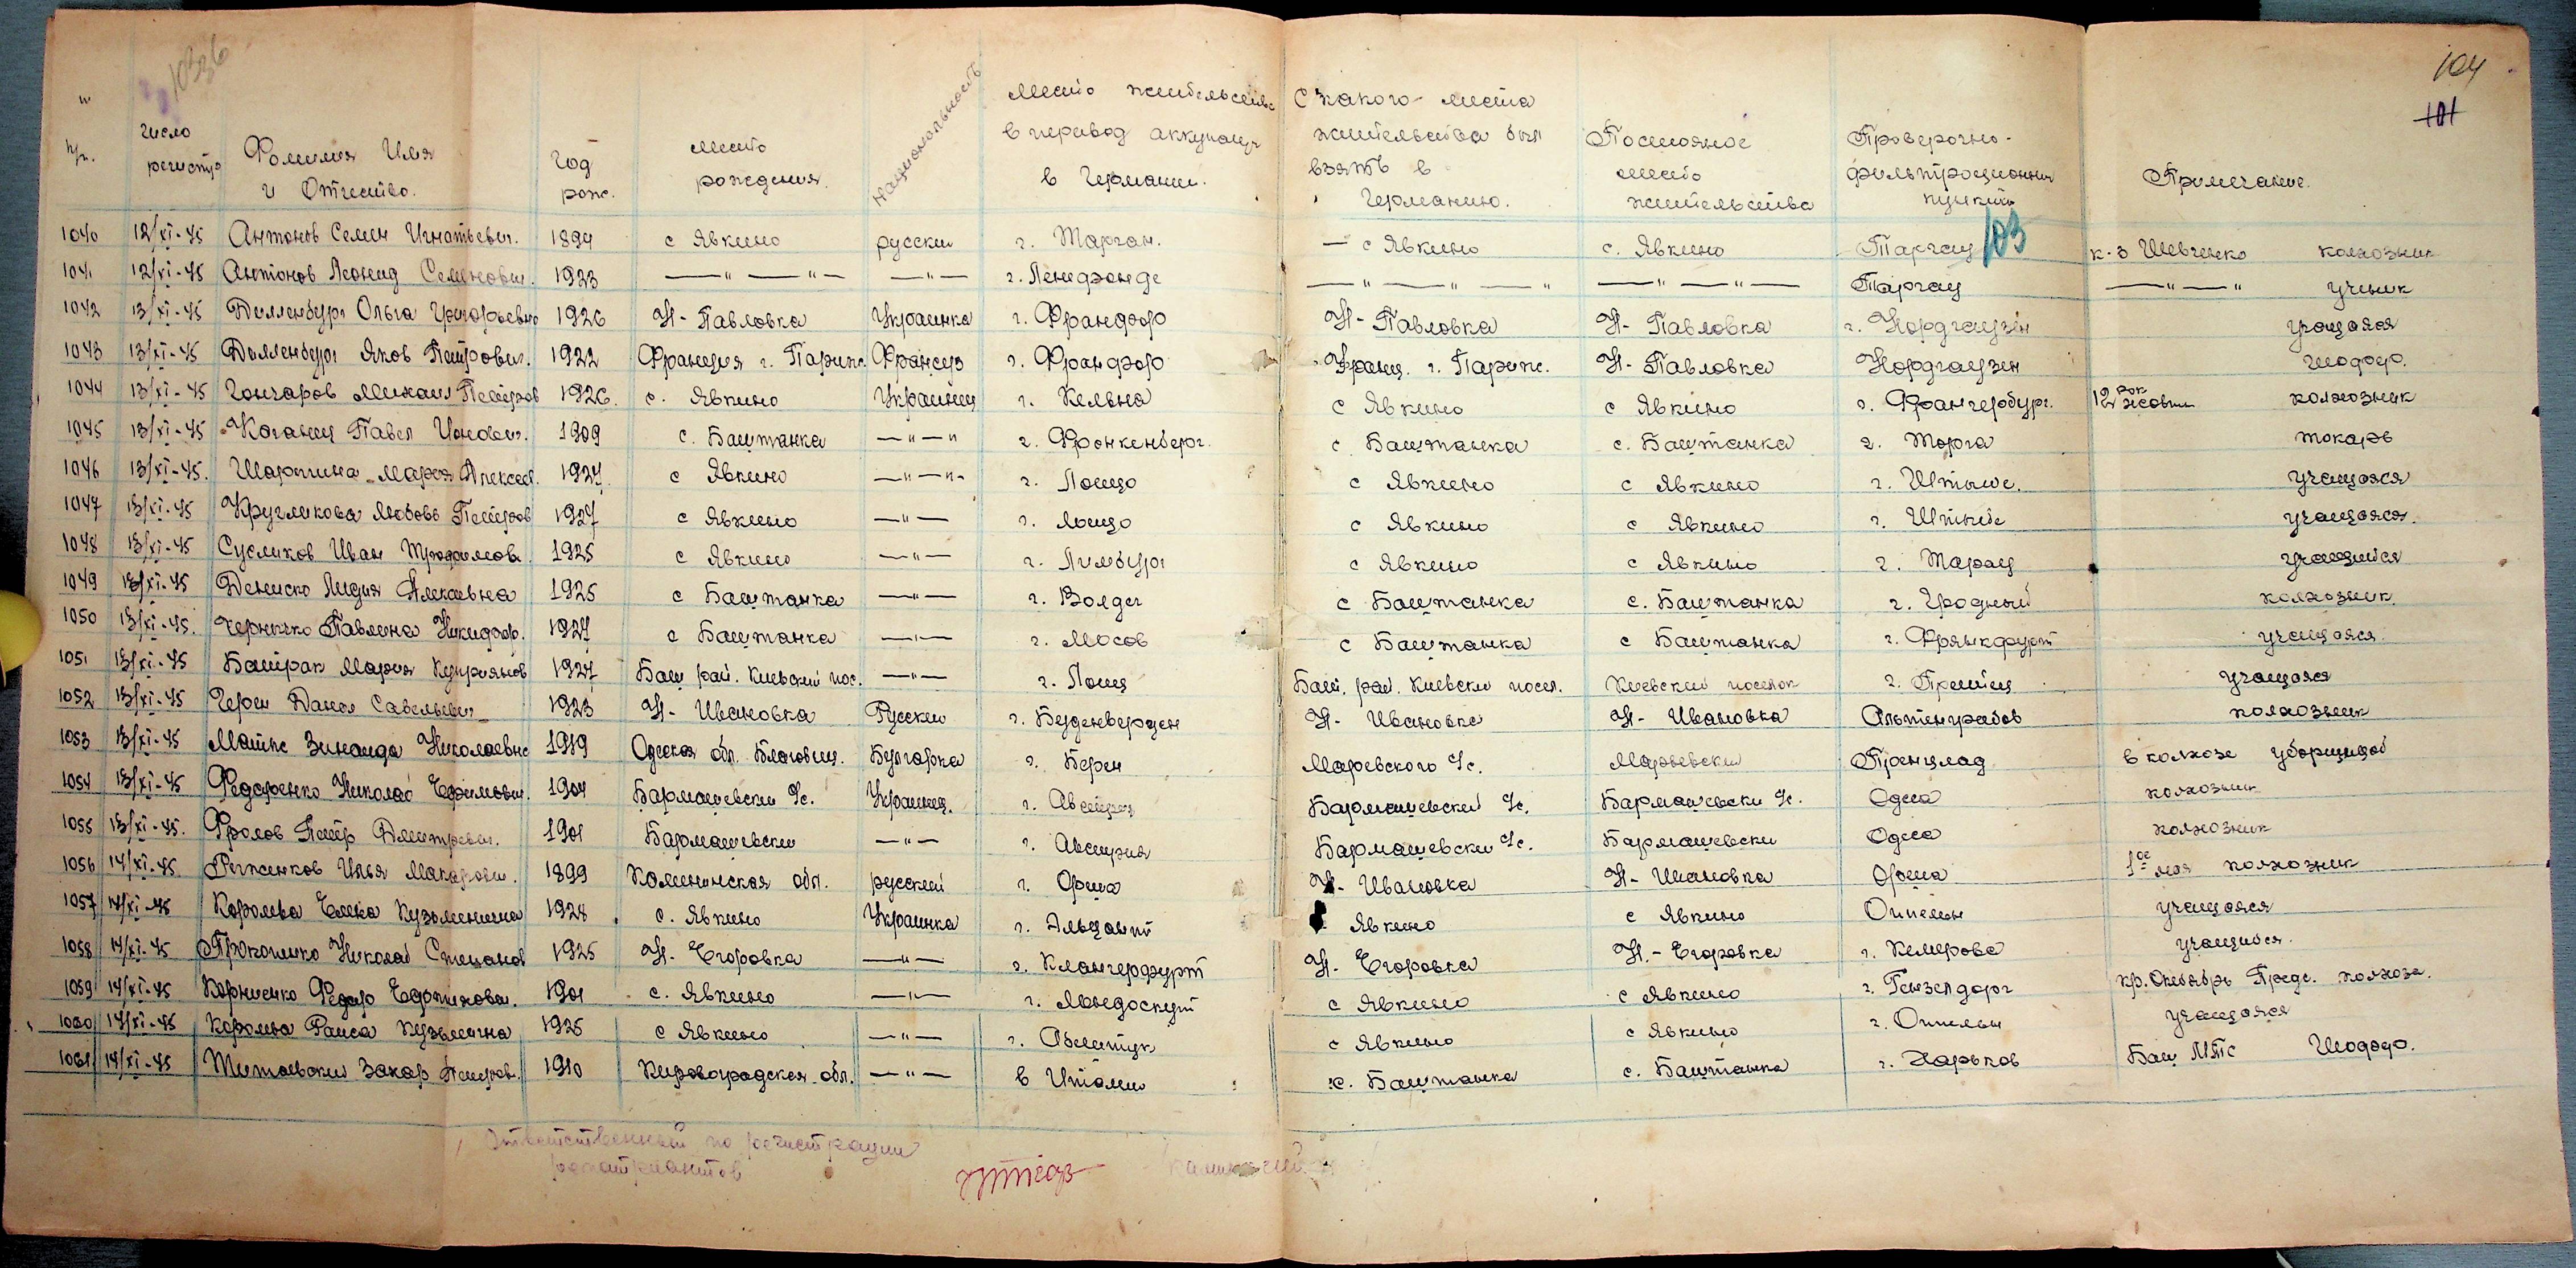 1036
104
101
п/п.
число регистр
Фомилия Имя и Отчество.
Год рож.
место рождения.
национольность
место жительств в период аккупации в Германии.
С какого места жительства был взят в Германию.
Постояное место жительства
Проверочно-фильтроционный пункт
Примечание.
103
1040 12/XI-45 Антонов Семен Игнатьевич. 1894 с Явкино русский г. Тарган. — с Явкино с. Явкино Таргац к-з Шевченко колхозник
1041 12/XI-45 Антонов Леонид Семенович. 1923 —"—"— —"— г. —"—"—" —"—"— Таргац —"—" ученик
1042 13/XI-45 Дилленбург Ольга Григорьевна 1926 Н-Павловка Украинка г. Франдфор Н-Павловка Н-Павловка г. Нордгаузин учащаяся
1043 13/XI-45 Дилленбург Яков Петрович. 1922 Франция г. Париж. Француз г. Франдфор Франц. г. Париж. Н-Павловка Нордгаузен шофер.
1044 13/XI-45 Гончаров Михаил Петров 1926. с. Явкино Украинец г. Кельна с Явкино с Явкино г. Франгербург. 12 рок жовтн колхозник
1045 13/XI-45 Коганец Павел 1909 с. Баштанка —"—" г. Фронкенберг. с Баштанка с. Баштанка г. Торга токарь
1046 13/XI-45. Мария Алексеев. 1927. с Явкино —"—"- г. Лощо с Явкино с Явкино г. учащаяся
1047 13/XI-45 Кругликова Любовь Петров 1927 с Явкино —"— г. Лощо с Явкино с Явкино г. учащаяся.
1048 13/XI-45 Сусликов Иван Трофимов. 1925 с Явкино —"— г. Лимбург с Явкино с Явкино г. Тарац учащийся
1049 13/XI-45 Дениско Лидия Алексевна 1925 с Баштанка —"— г. Волдег с Баштанка с. Баштанка г. Гродный колхозник.
1050 13/XI-45. Павлина Никифор. 1927 с Баштанка —"— г. Мосов с Баштанка с Баштанка г. Франкфурт учащаяся.
1051 13/XI-45 Байрак Мария Куприянов 1927 Баш рай. Киевский пос. —"— г. Лощ Баш. рай. Киевский посел. Киевский поселок г. учащаяся
1052 13/XI-45 Данил Савельевич 1923 Н-Ивановка Русский г. Буденверден Н-Ивановка Н-Ивановка Альтенграбов колхозник
1053 13/XI-45 Зинаида Николаевна 1919 Одеская обл. Благовещ. Булгарка г. Берен Маревского с/с. Марьевский Пренцлад в колхозе уборщицей
1054 13/XI-45 Федоренко Николай Ефимович. 1904 Бармашевский с/с. Украинец. г. Австрия Бармашевский с/с. Бармашевски с/с. Одеса колхозник
1055 13/XI-45. Фролов Петр Дмитревич. 1901 Бармашевский —"— г. Австрия Бармашевски с/с. Бармашевски Одеса колхозник
1056 14/XI-45. Илья Макарович. 1899 Калининская обл. русский г. Орша Н-Ивановка Н-Ивановка Орша 1ое мая колхозник
1057 14/XI-45 Королева Кузьминична 1928 с. Явкино Украинка г. Явкино с Явкино Оппельн учащаяся
1058 14/XI-45 Николай Степанов 1925 Н-Егоровка —"— г. Клангерфурт Н-Егоровка Н.-Егоровка г. Кемерова учащийся.
1059 14/XI-45 Корниенко Федор 1901 с. Явкино —"— г. Ландоскут с Явкино с Явкино г. Гензелдорг кр. Октябрь Предс. колхоза.
1060 14/XI-45 Королева Раиса Кузьмична 1925 с Явкино —"— г. с Явкино с Явкино г. Оппельн учащаяся
1061 14/XI-45 Захар Петров. 1910 Кировоградская обл. —"— в Италии с. Баштанка с. Баштанка г. Харьков Баш МТС Шофер.
Ответственный по регистрации
репатриантов